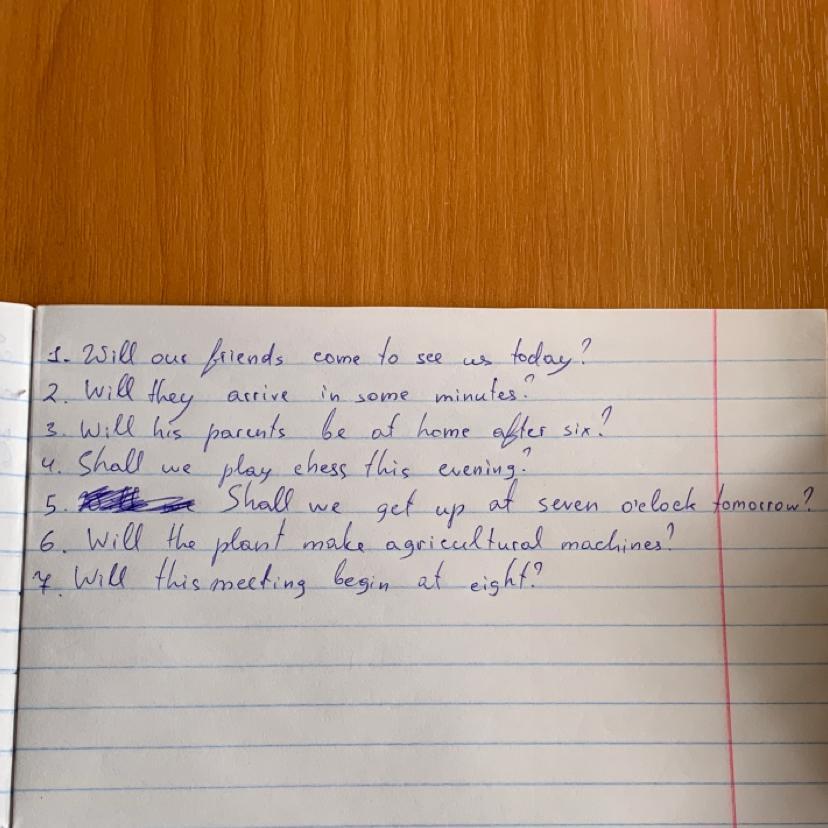 1. Will our friends come to see us today?
2. Will they arrive in some minutes?
3. Will his parents be at home after six?
4. Shall we play chess this evening?
5. Shall we get up at seven o'clock tomorrow?
6. Will the plant make agricultural machines?
7. Will this meeting begin at eight?